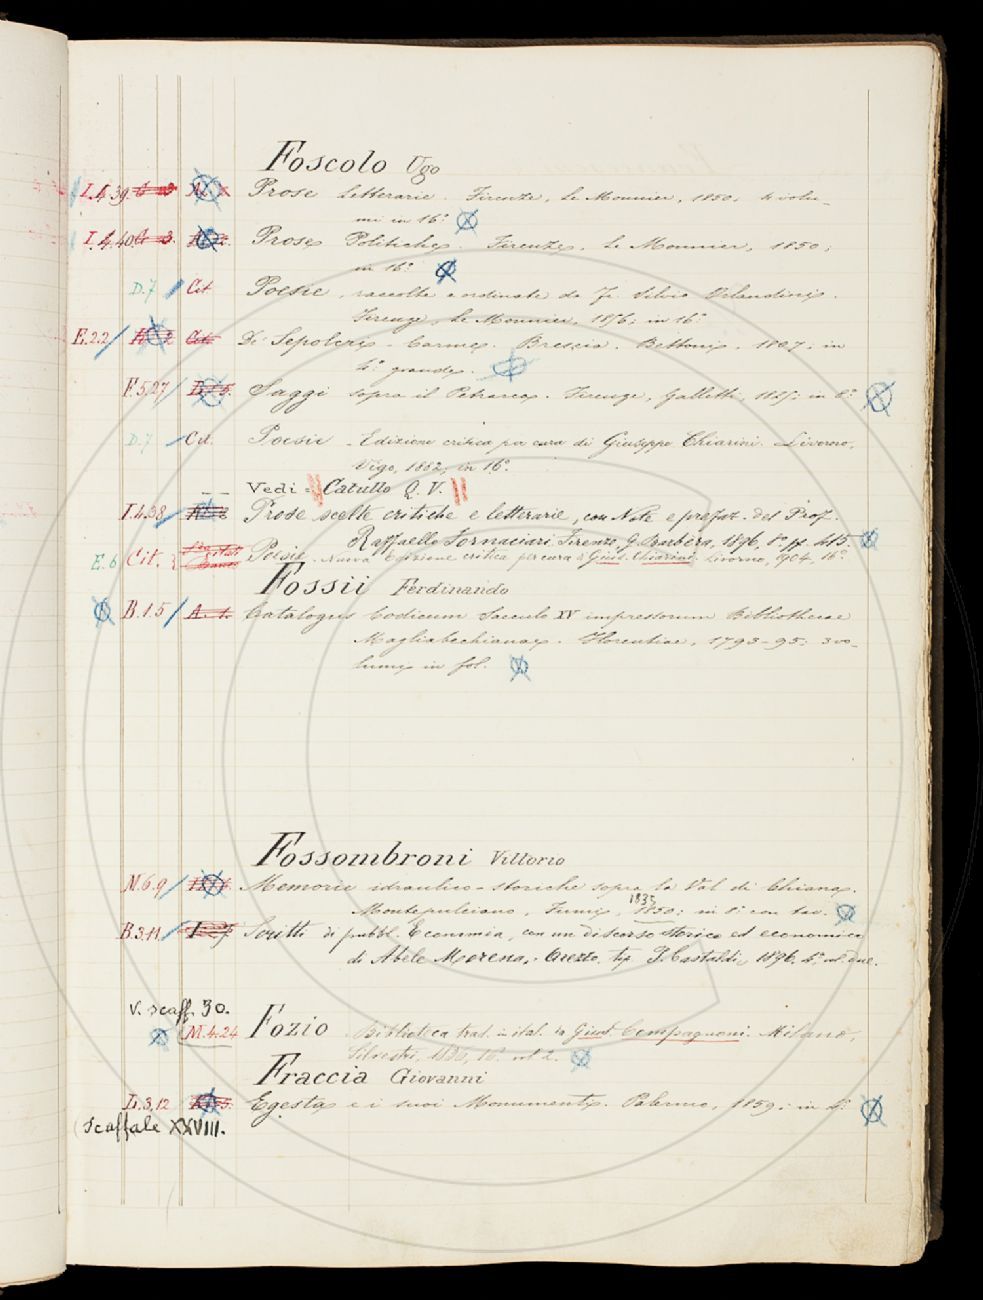 Foscolo Ugo
I.4.39. Prose letterarie. Firenze, Le Monnier, 1850. 4 volu-
mi in 16°
I.4.40 Prose Politiche. Firenze, Le Monnier, 1850;
in 16°
D.7 Cit Poesie, raccolte e ordinate da F. Silvio Orlandini.
Firenze, Le Monnier, 1876; in 16°
E.2.2 Cit. De' Sepolcri - Carme. Brescia. Bettoni, 1807; in
4° grande.
F.5.27 Saggi sopra il Petrarca. Firenze, Galletti, in 8°
D.7 Cit. Poesie - Edizione critica per cura di Giuseppe Chiarini. Livorno,
Vigo, 1882, in 16°.
Vedi = Catullo Q. V.
I.4.38 Prose scelte critiche e letterarie, con Note e prefaz. del Prof.
Raffaello Fornaciari. Firenze, G. Barbèra, 1896, 8° pp. 415.
E.6 Cit. Poesie. Nuova Edizione critica per cura di Gius. Chiarini. Livorno, 1904, 16°
Fossii Ferdinando
B.1.5 A. 1. Catalogus Codicum Saeculo XV impressorum Bibliothecae
Magliabechianae. Florentiae, 1793-95; 3 vo-
lumi in fol.
Fossombroni Vittorio
N.6.9 Memorie idraulico-storiche sopra la Val di Chiana.
1835
Montepulciano, Fumi, 1850; in 8° con tav.
B.3.11 Scritti di pubbl. Economia, con un discorso storico ed economico
di Abele Morena. Arezzo, tip. Castaldi, 1896, 4° vol. due.
V. scaff. 30.
M.4.24 Fozio Biblioteca trad. in ital. da Gius. Compagnoni. Milano,
Silvestri, 16° vol 2.
Fraccia Giovanni
L.3.12 Egesta e i suoi Monumenti. Palermo, 1859; in 4°
(scaffale XXVIII.